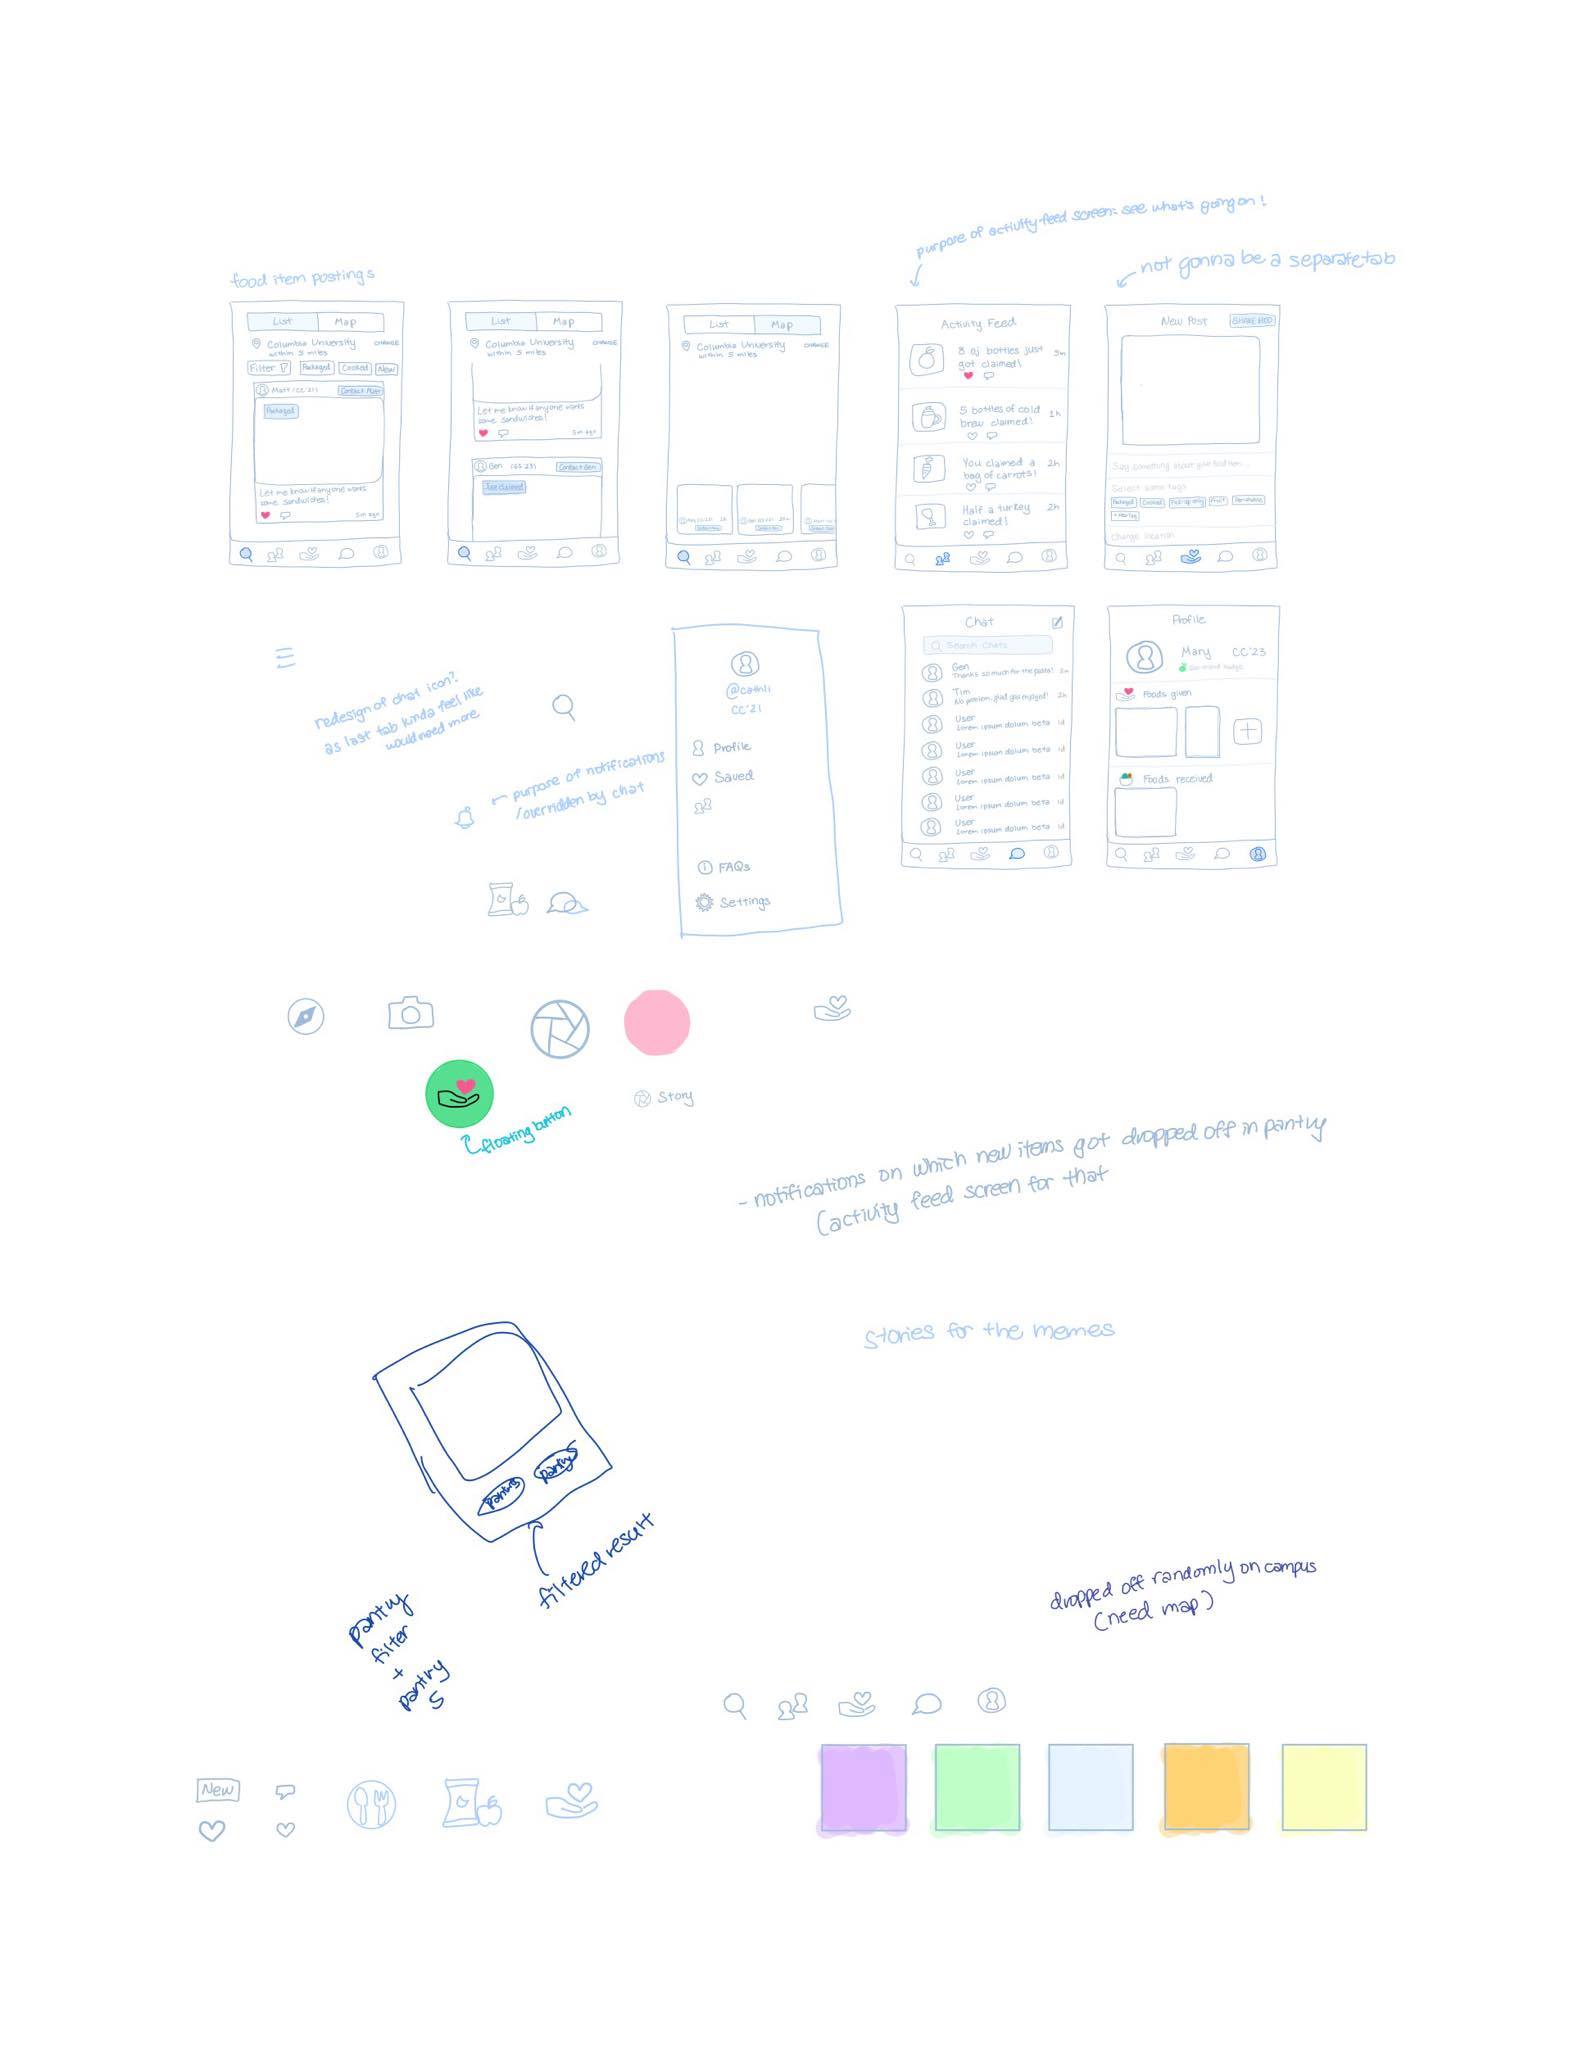 purpose of activity-feed screen: see what's going on!
not gonna be a separate tab
food item postings
List
Map
Columbia University
within 5 miles
CHANGE
Filter
Packaged
Cooked
New
Matt (CC'21)
Contact Matt
Packaged
Let me know if anyone wants
some sandwiches!
5m ago
List
Map
Columbia University
within 5 miles
CHANGE
Let me know if anyone wants
some sandwiches!
5m ago
Gen (GS 23)
Contact Gen
Just claimed
List
Map
Columbia University
within 5 miles
CHANGE
Activity Feed
8 oj bottles just
got claimed!
5m
5 bottles of cold
brew claimed!
1h
You claimed a
bag of carrots!
2h
Half a turkey
claimed!
2h
New Post
SHARE FOOD
Say something about your food item...
Select some tags
Packaged
Cooked
Pick-up only
Fruit
Perishable
+ New tag
Change location
redesign of chat icon?
as last tab kinda feel like
would need more
purpose of notifications
/overridden by chat
@cathli
CC'21
Profile
Saved
FAQs
Settings
Chat
Search Chats
Gen
Thanks so much for the pasta! 2m
Tim
No problem, glad you enjoyed! 2h
User
Lorem ipsum dolum beta 1d
User
Lorem ipsum dolum beta 1d
User
Lorem ipsum dolum beta 1d
User
Lorem ipsum dolum beta 1d
User
Lorem ipsum dolum beta 1d
Profile
Mary CC'23
Foods given
Foods received
floating button
Story
- notifications on which new items got dropped off in pantry
(activity feed screen for that
Stories for the memes
pantry
pantry
filtered result
pantry
filter
+
pantry
5
dropped off randomly on campus
(need map)
New